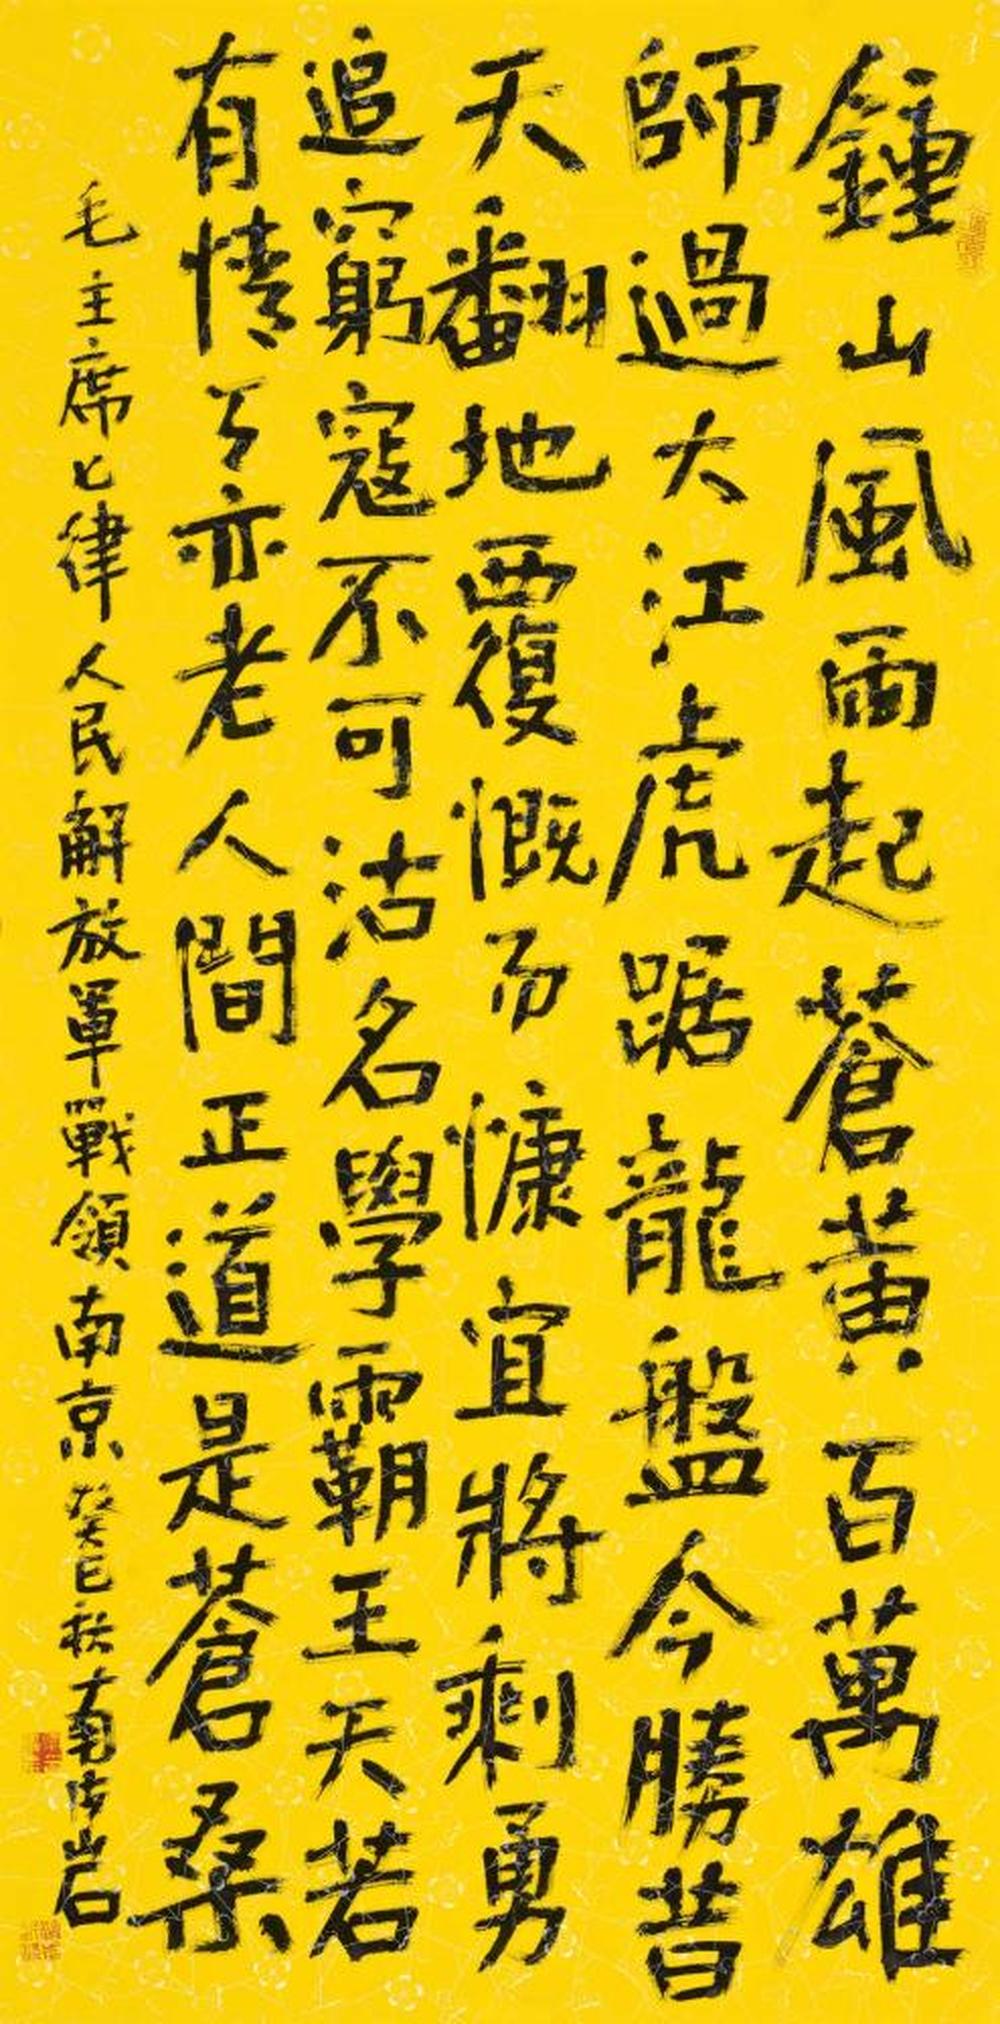 鍾山風雨起蒼黃百萬雄
師過大江虎踞龍盤今勝昔
天翻地覆慨而慷宜將剩勇
追窮寇不可沽名學霸王天若
有情天亦老人間正道是蒼桑
毛主席七律人民解放軍戰領南京癸巳秋南海岩